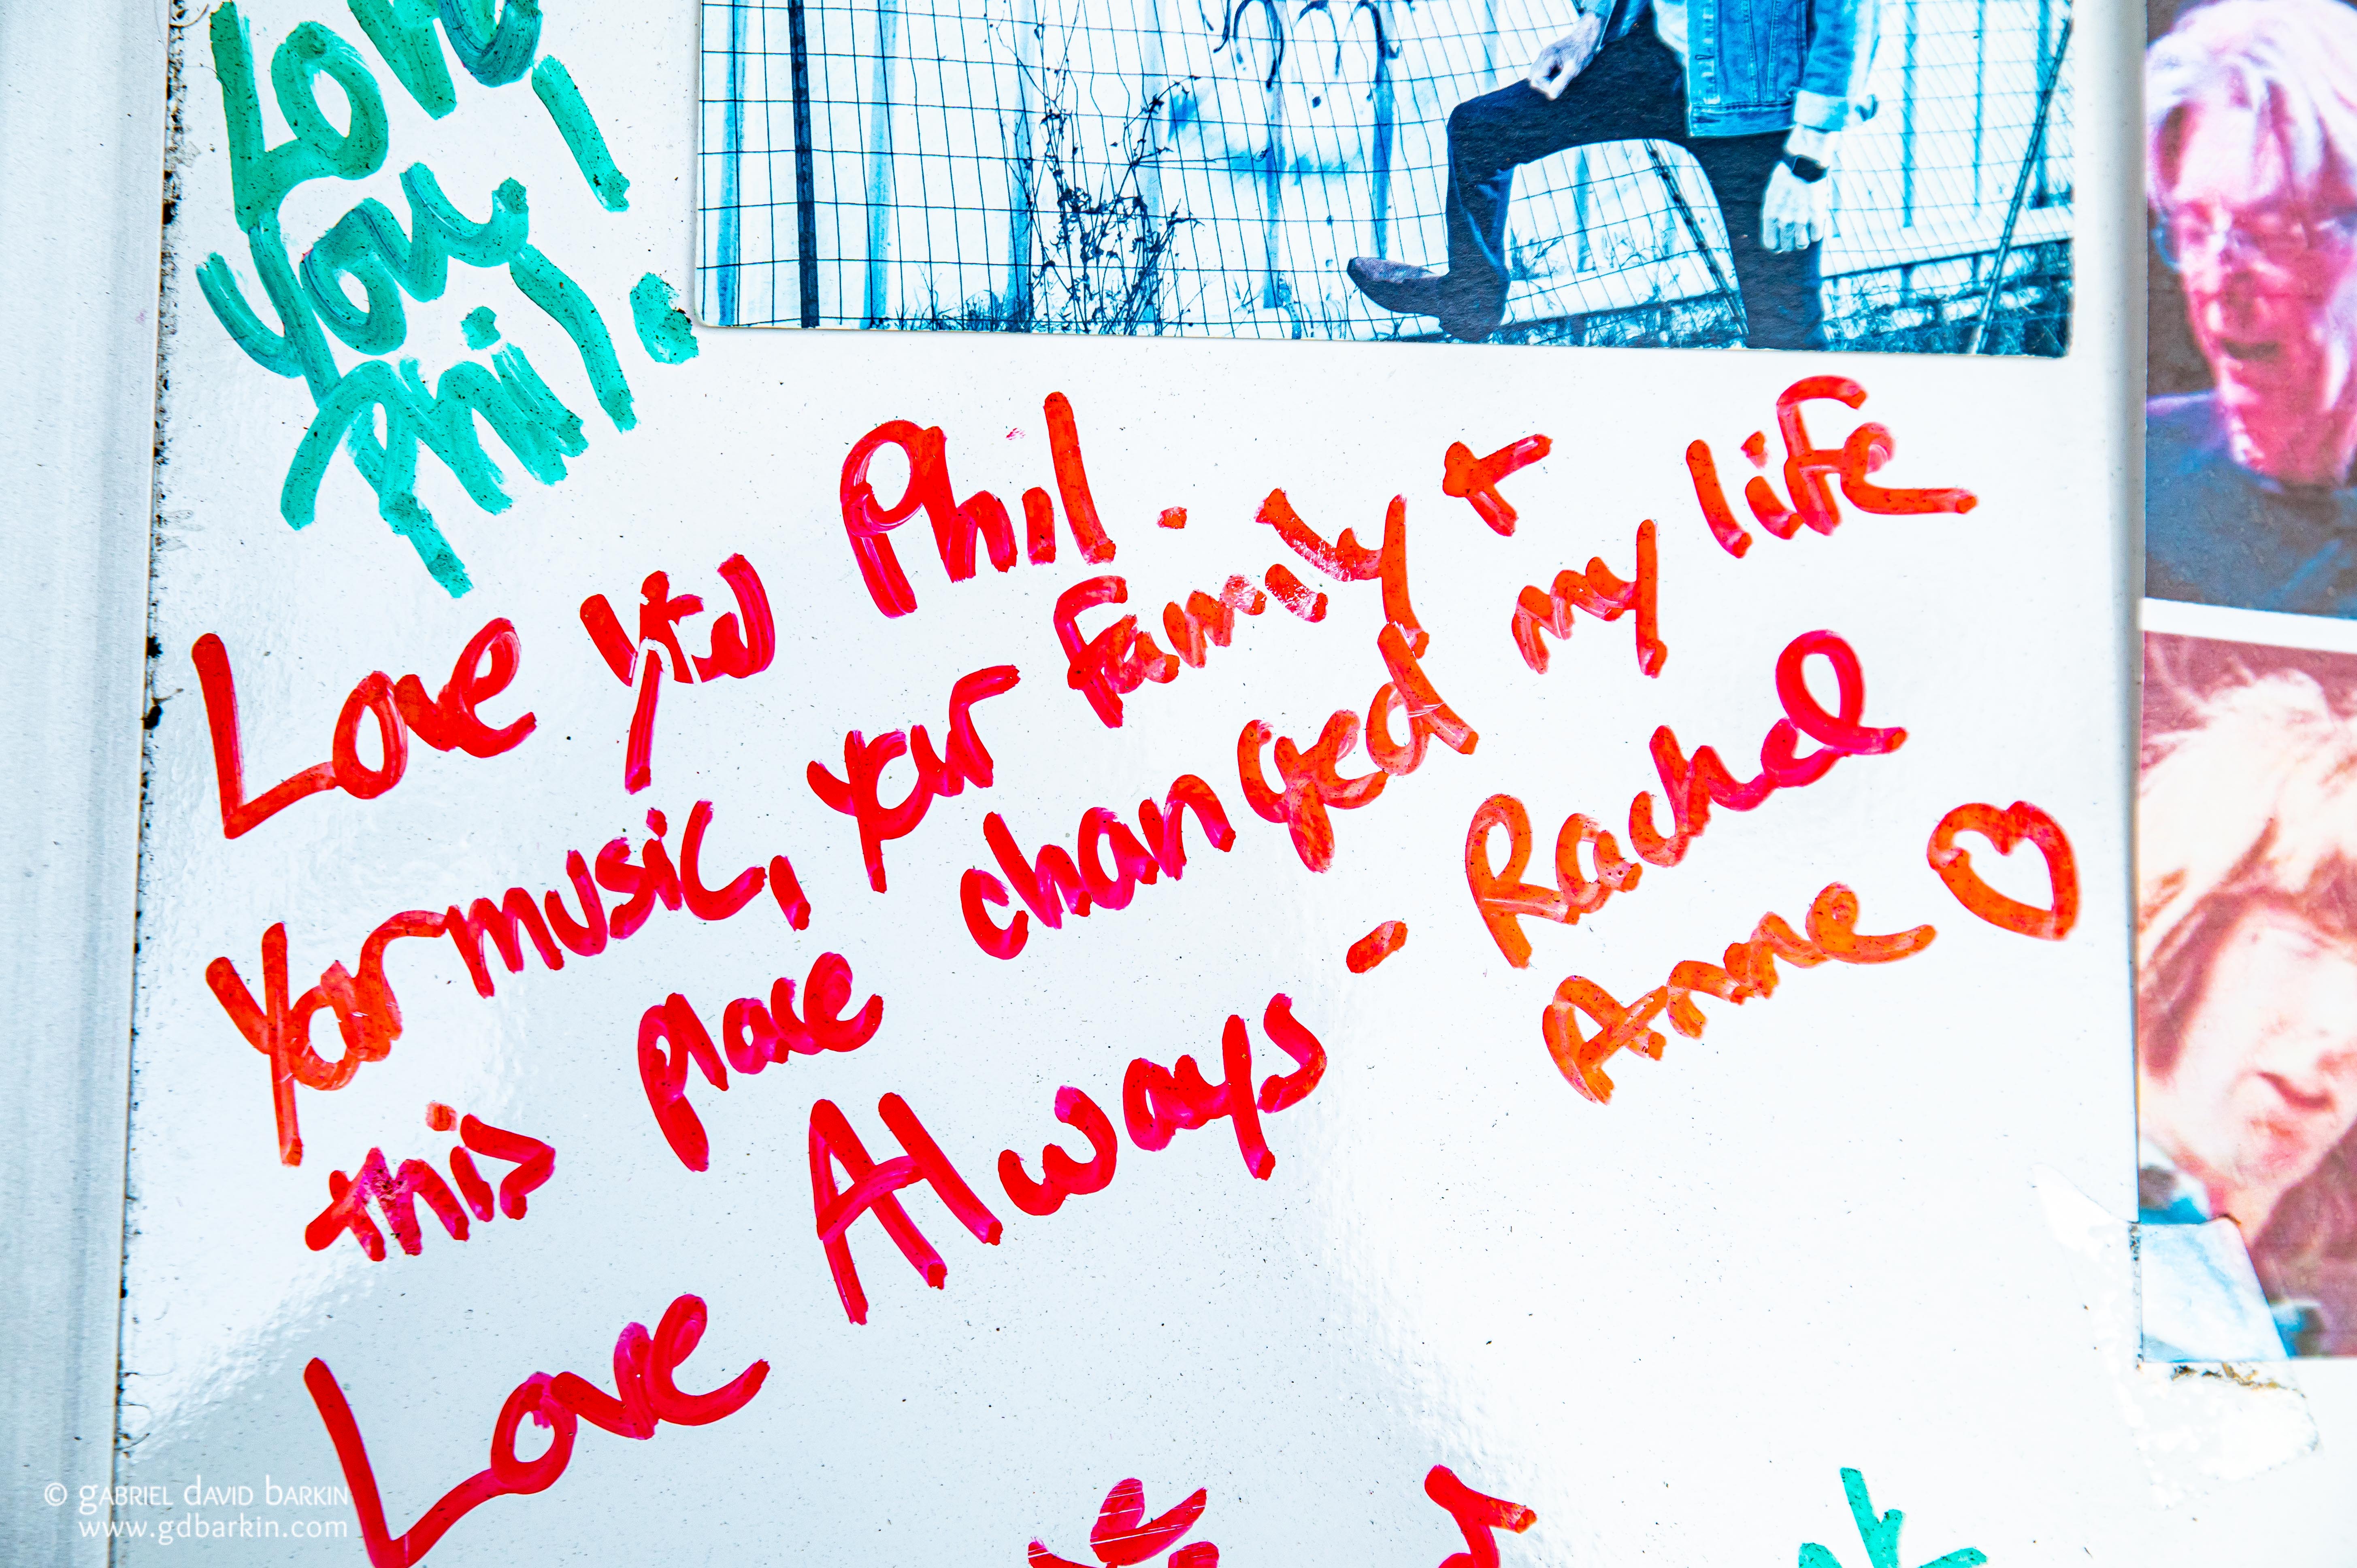 Love
you,
Phil!
Love you Phil.
Your music, your family +
this place changed my life
Love Always - Rachel
Anne
© GABRIEL DAVID BARKIN
www.gdbarkin.com